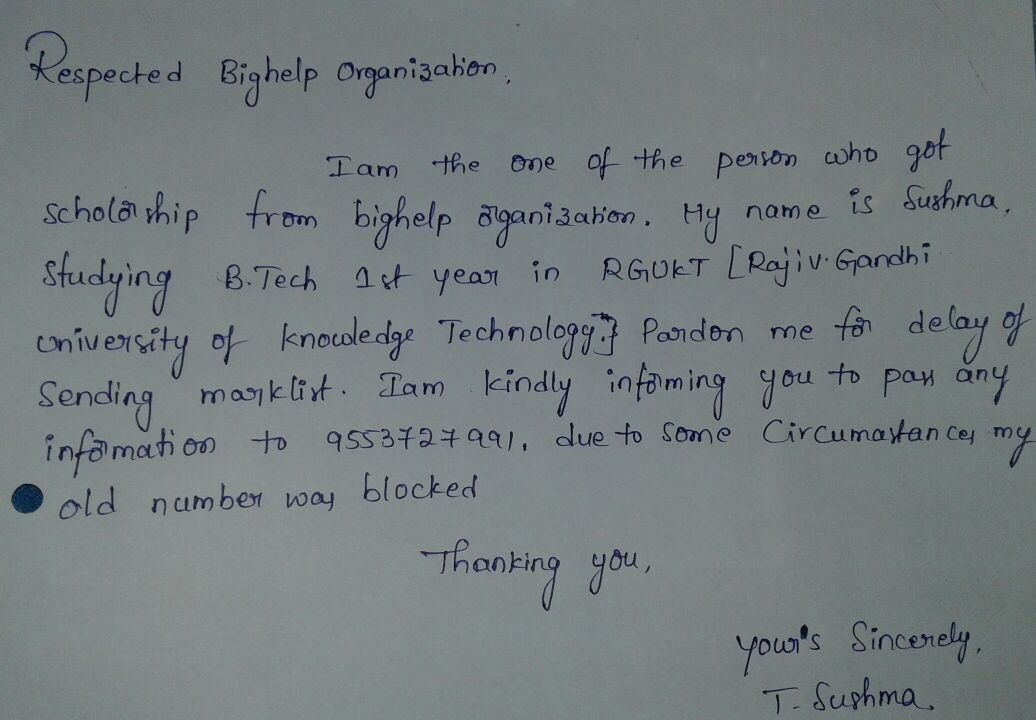 Respected Bighelp Organization,
Iam the one of the person who got
scholarship from bighelp organization. My name is Sushma,
Studying B.Tech 1st year in RGUKT [Rajiv. Gandhi
university of knowledge Technology.} Pardon me for delay of
Sending marklist. Iam kindly informing you to pass any
information to 9553727991, due to some Circumastances my
old number was blocked
Thanking you,
your's Sincerely,
T. Sushma.